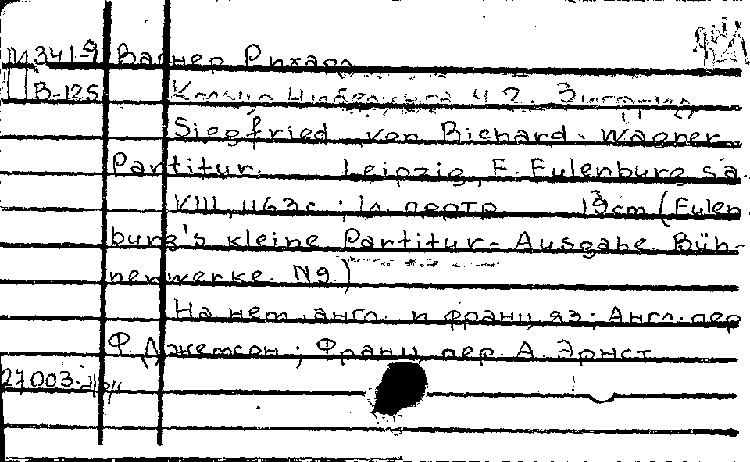 П341-9 Вагнер Рихард
В-125 Кольцо Нибелунга ч 2. Зигфрид
Siegfried von Richard Wagner
Partitur. Leipzig, E. Eulenburg s a.
VIII, 1163с ; 1л. портр 19cm (Eulen
burg's kleine Partitur-Ausgabe. Büh-
nenwerke. N9)
На нем, англ. и франц яз; Англ. пер
Ф Джемсон; Франц пер. А. Эрнст
27003